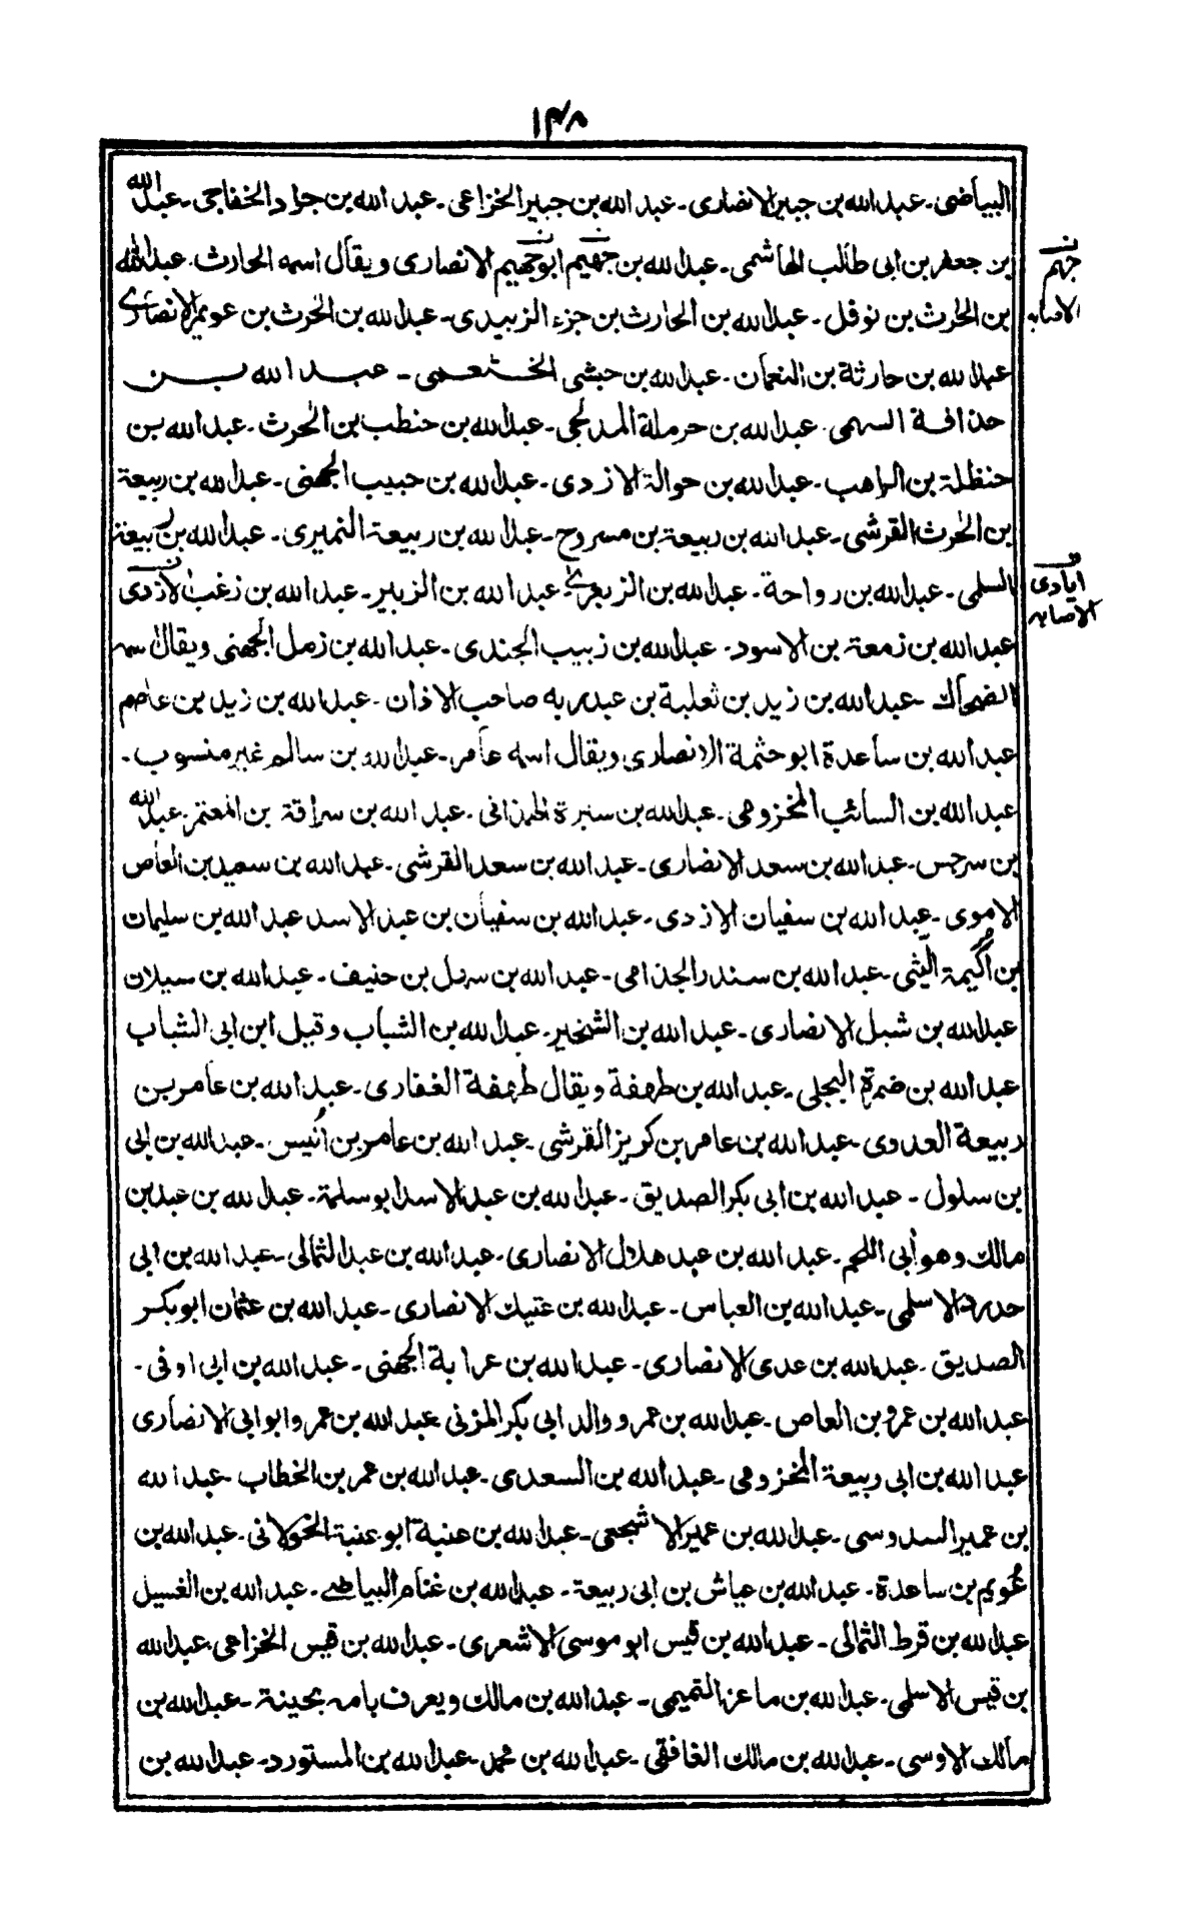 ۱۴۸
البياضى - عبد الله بن جبير الانصارى - عبد الله بن جبير الخزاعى - عبد الله بن جراد الخفاجى - عبد الله
بن جعفر بن ابى طالب الهاشمى - عبد الله بن جهيم ابو جهيم الانصارى ويقال اسمه الحارث - عبد الله
جهم
بن الحرث بن نوفل - عبد الله بن الحارث بن جزء الزبيدى - عبد الله بن الحرث بن عويمر الانصارى
الاصابه
عبد الله بن حارثة بن النعمان - عبد الله بن حبشى الخثعمى - عبد الله بن
حذافة السهمى - عبد الله بن حرملة المدلجى - عبد الله بن حنطب بن الحرث - عبد الله بن
حنظلة بن الراهب - عبد الله بن حوالة الازدى - عبد الله بن حبيب الجهنى - عبد الله بن ربيعة
بن الحرث القرشى - عبد الله بن ربيعة بن مسروح - عبد الله بن ربيعة النميرى - عبد الله بن ربيعة
السلمى - عبد الله بن رواحة - عبد الله بن الزبعرى - عبد الله بن الزبير - عبد الله بن زغب الازدى
ايادى
الاصابه
عبد الله بن زمعة بن الاسود - عبد الله بن زبيب الجندى - عبد الله بن زمل الجهنى ويقال اسمه
الضحاك - عبد الله بن زيد بن ثعلبة بن عبد ربه صاحب الاذان - عبد الله بن زيد بن عاصم
عبد الله بن ساعدة ابو حثمة الانصارى ويقال اسمه عامر - عبد الله بن سالم غير منسوب -
عبد الله بن السائب المخزومى - عبد الله بن سنبرة الهمذانى - عبد الله بن سراقة بن المعتمر - عبد الله
بن سرجس - عبد الله بن سعد الانصارى - عبد الله بن سعد القرشى - عبد الله بن سعيد بن العاص
الاموى - عبد الله بن سفيان الازدى - عبد الله بن سفيان بن عبد الاسد عبد الله بن سليمان
بن اكيمة الليثى - عبد الله بن سندر الجذامى - عبد الله بن سهل بن حنيف - عبد الله بن سيلان
عبد الله بن شبل الانصارى - عبد الله بن الشخير - عبد الله بن الشياب وقيل ابن ابى الشباب
عبد الله بن ضمرة البجلى - عبد الله بن طهفة ويقال طهفة الغفارى - عبد الله بن عامر بن
ربيعة العدوى - عبد الله بن عامر بن كريز القرشى - عبد الله بن عامر بن أنيس - عبد الله بن ابى
بن سلول - عبد الله بن ابى بكر الصديق - عبد الله بن عبد الاسد ابو سلمة - عبد الله بن عبد بن
مالك وهو أبى اللحم - عبد الله بن عبد هلال الانصارى - عبد الله بن عبد الثمالى - عبد الله بن ابى
حدرد الاسلمى - عبد الله بن العباس - عبد الله بن عتيك الانصارى - عبد الله بن عثمان ابو بكر
الصديق - عبد الله بن عدى الانصارى - عبد الله بن عرابة الجهنى - عبد الله بن ابى اوفى -
عبد الله بن عمرو بن العاص - عبد الله بن عمرو والد ابى بكر المزنى عبد الله بن عمرو ابو ابى الانصارى
عبد الله بن ابى ربيعة المخزومى - عبد الله بن السعدى - عبد الله بن عمر بن الخطاب - عبد الله
بن عمير السدوسى - عبد الله بن عمير الاشجعى - عبد الله بن عنبة ابو عنبة الخولانى - عبد الله بن
عُويم بن ساعدة - عبد الله بن عياش بن ابى ربيعة - عبد الله بن غنام البياضى - عبد الله بن الغسيل
عبد الله بن قرط الثمالى - عبد الله بن قيس ابو موسى الاشعرى - عبد الله بن قيس الخزاعى - عبد الله
بن قيس الاسلمى - عبد الله بن ماعز التميمى - عبد الله بن مالك ويعرف بامه بحينة - عبد الله بن
مالك الاوسى - عبد الله بن مالك الغافقى - عبد الله بن محمد - عبد الله بن المستورد - عبد الله بن